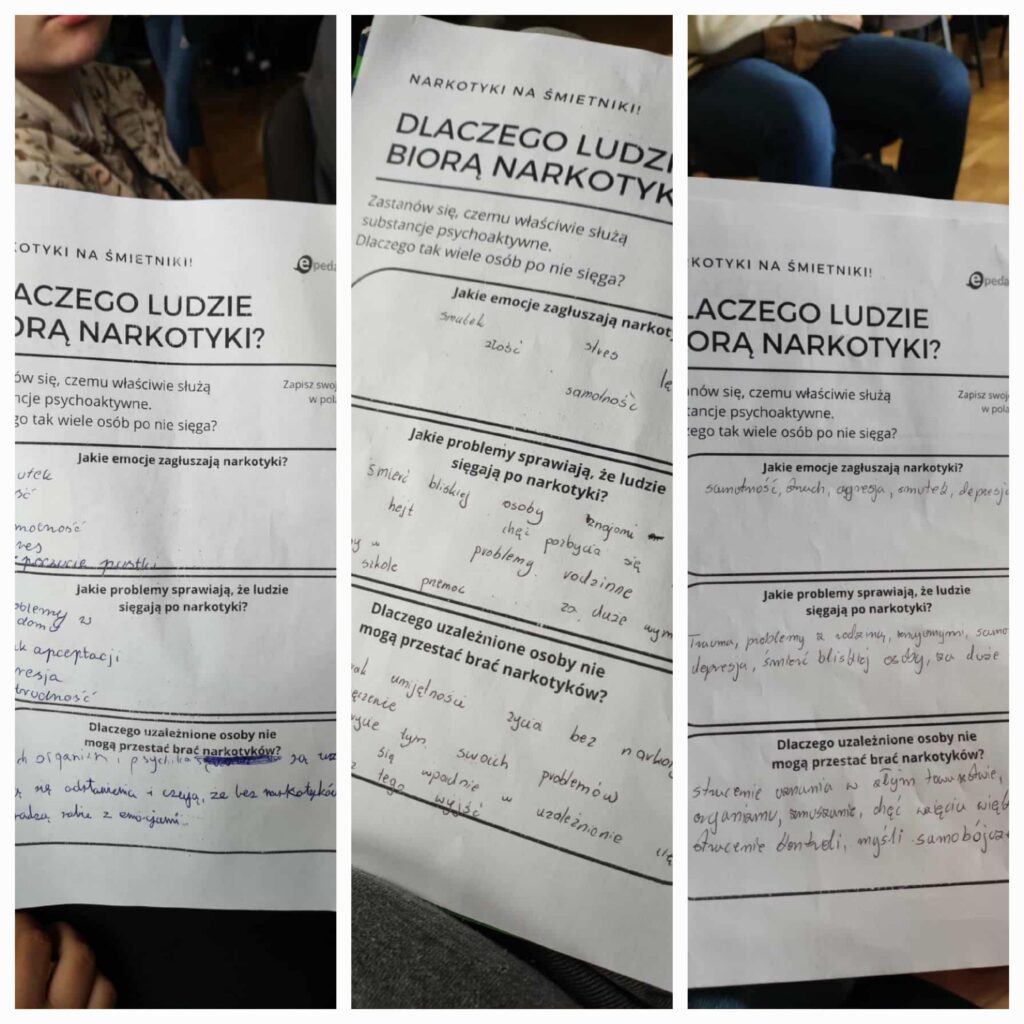 KOTYKI NA ŚMIETNIKI!
epeda
ACZEGO LUDZIE
ORĄ NARKOTYKI?
ów się, czemu właściwie służą
ncje psychoaktywne.
go tak wiele osób po nie sięga?
Zapisz swoj
w pola
Jakie emocje zagłuszają narkotyki?
utek
ść
motność
res
poczucie pustki
Jakie problemy sprawiają, że ludzie
sięgają po narkotyki?
oblemy w
domu
k apceptacji
resja
trudność
Dlaczego uzależnione osoby nie
mogą przestać brać narkotyków?
organizm i psychika są uz
odstawienia i czują, że bez narkotyków
radzą sobie z emocjami
NARKOTYKI NA ŚMIETNIKI!
DLACZEGO LUDZI
BIORĄ NARKOTYK
Zastanów się, czemu właściwie służą
substancje psychoaktywne.
Dlaczego tak wiele osób po nie sięga?
Jakie emocje zagłuszają narkot
smutek
złość stres
lę
samotność
Jakie problemy sprawiają, że ludzie
sięgają po narkotyki?
śmierć bliskiej osoby znajomi
hejt chęć pozbycia się
y w problemy rodzinne
szkole przemoc za duże wym
Dlaczego uzależnione osoby nie
mogą przestać brać narkotyków?
ak umijętności życia bez narko
życie tym swoich problemów
się wpadnie w uzależnienie
z tego wyjść
RKOTYKI NA ŚMIETNIKI!
epeda
LACZEGO LUDZIE
ORĄ NARKOTYKI?
nów się, czemu właściwie służą
tancje psychoaktywne.
zego tak wiele osób po nie sięga?
Zapisz swoj
w pola
Jakie emocje zagłuszają narkotyki?
samotność, strach, agresja, smutek, depresj
Jakie problemy sprawiają, że ludzie
sięgają po narkotyki?
Trauma, problemy z rodziną, znajomymi, samo
depresja, śmierć bliskiej osoby, za duże
Dlaczego uzależnione osoby nie
mogą przestać brać narkotyków?
stracenie uznania w złym towarzystwie,
organizmu, zmuszanie, chęć wzięcia więk
stracenie kontroli, myśli samobójcz